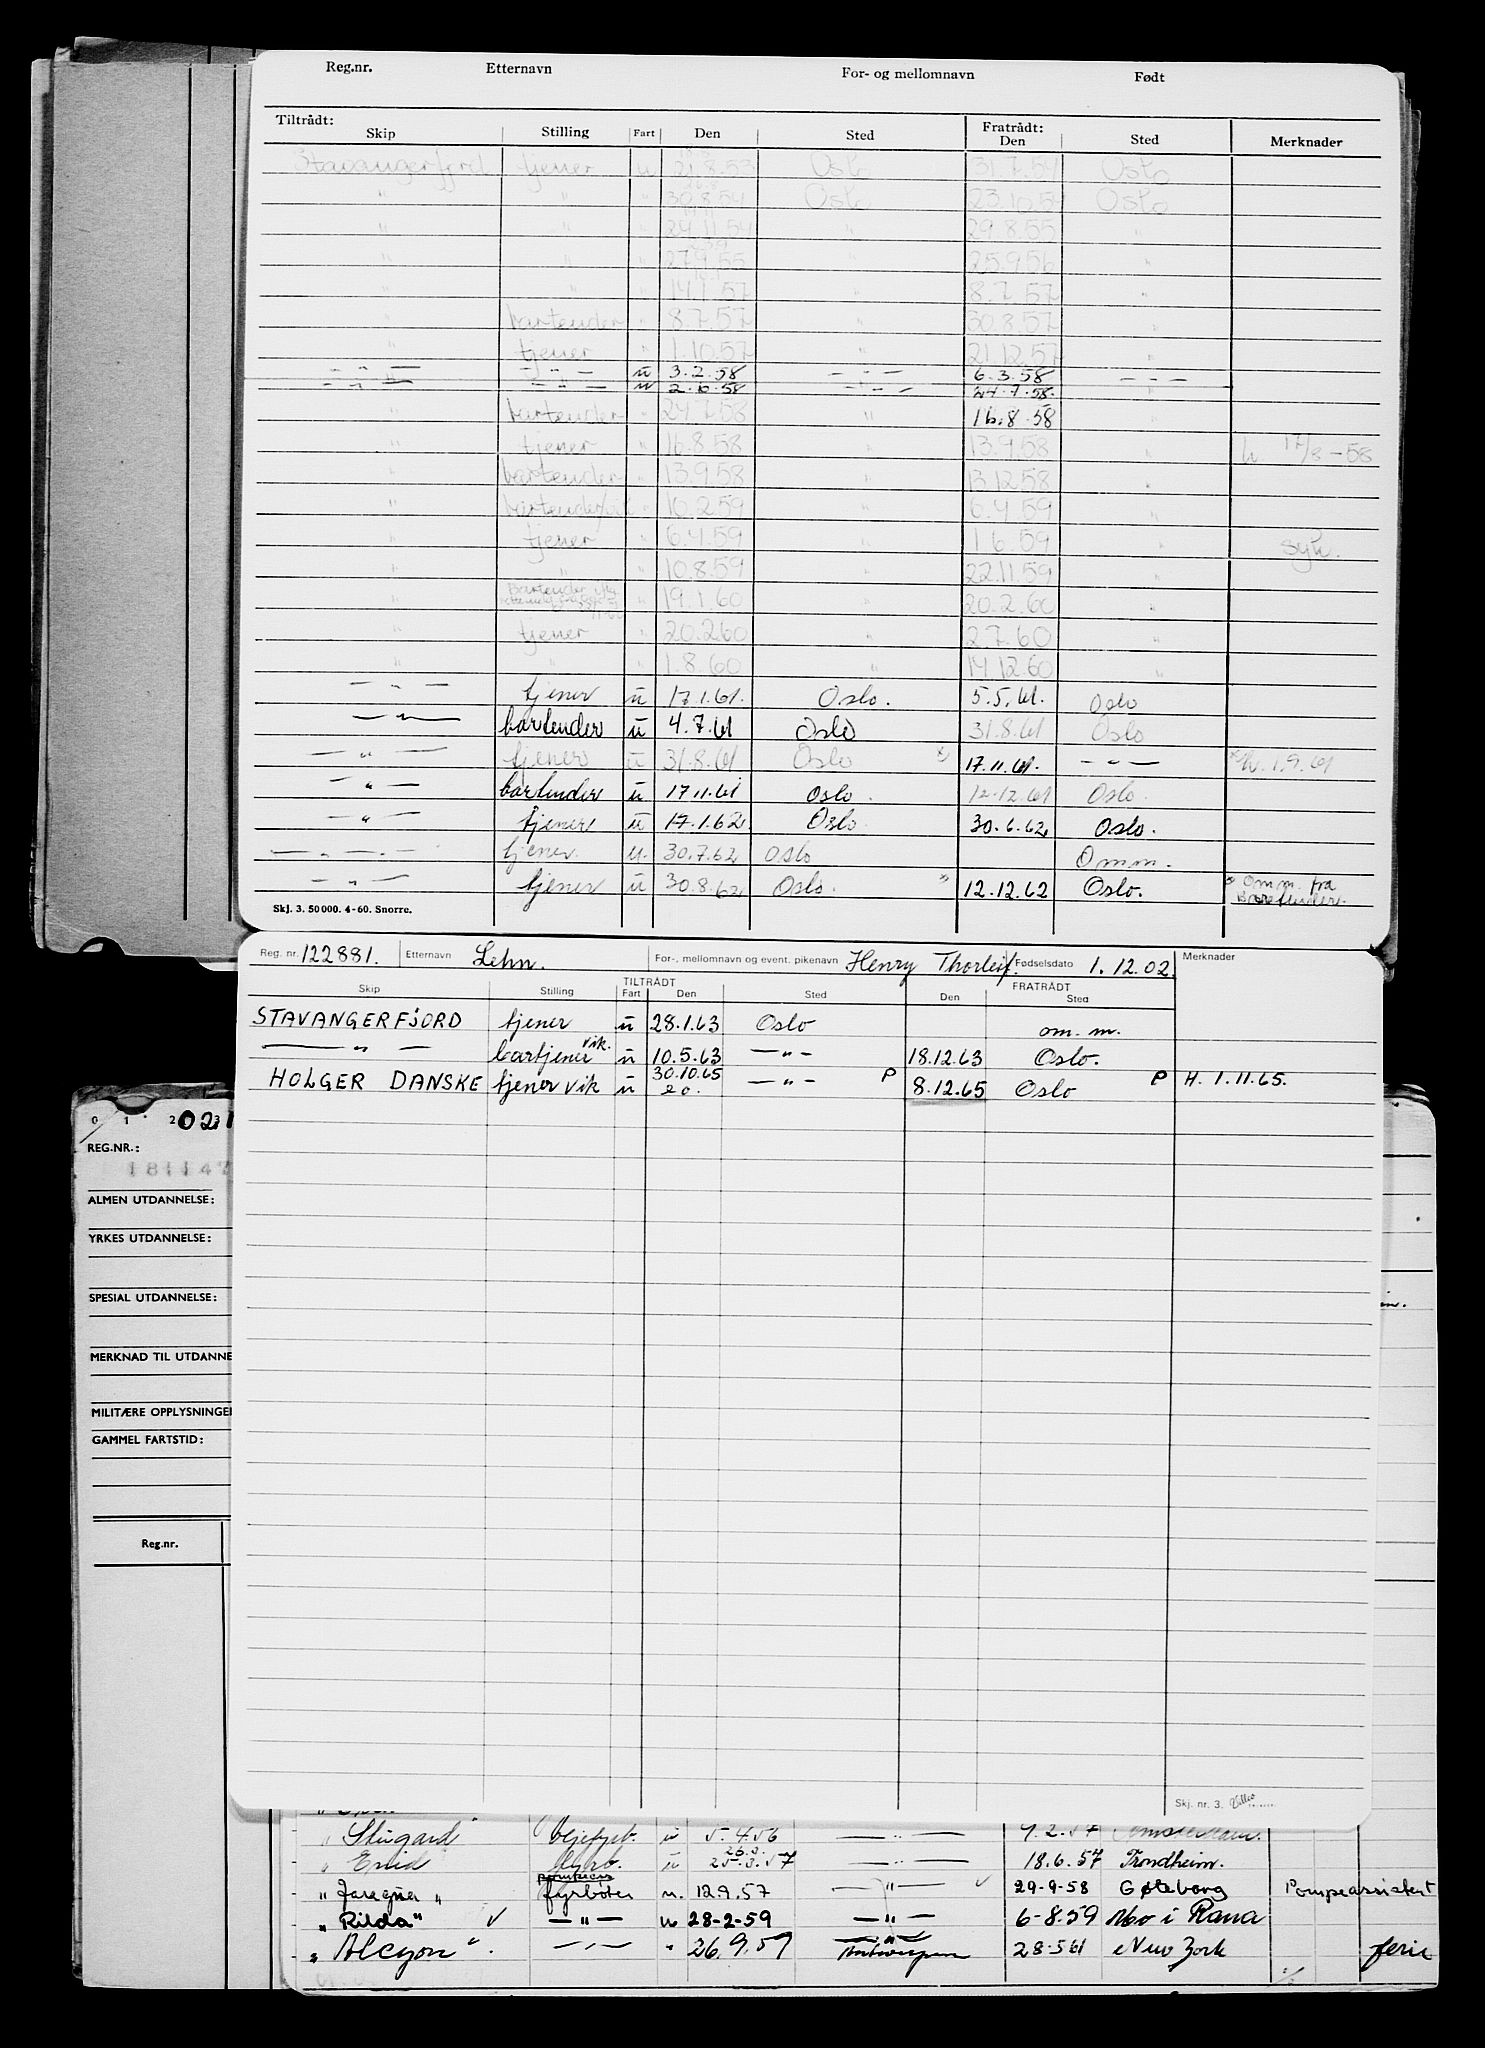 Reg.nr. Etternavn For- og mellomnavn Født
Tiltrådt: Fratrådt:
Skip Stilling Fart Den Sted Den Sted Merknader
Stavangerfjord tjener u 21.8.53 Oslo 31.7.54 Oslo
" " " 30.8.54 Oslo 23.10.54 Oslo
" " " 24.11.54 " 29.8.55 "
" " " 27.9.55 " 25.9.56 "
" " " 14.1.57 " 8.7.57 "
" bartender " 8.7.57 " 30.8.57 "
" tjener " 1.10.57 " 21.12.57 "
— " — — " — u 3.2.58 — " — 6.3.58 — " —
— " — — " — u 2.6.58 — " — 24.7.58. "
" bartender " 24.7.58 " 16.8.58 "
" tjener " 16.8.58 13.9.58 " h. 17/8-58
bartender " 13.9.58 13.12.58 "
" bartender " 10.2.59 6.4.59 "
" tjener " 6.4.59 1.6.59 " syk.
" " " 10.8.59 22.11.59 "
" Bartender " 19.1.60 20.2.60 "
" tjener " 20.2.60 " 2.7.60 "
" " " 1.8.60 " 14.12.60 "
— " — tjener u 17.1.61. Oslo. 5.5.61. Oslo
— " — bartender u 4.7.61 Oslo 31.8.61 Oslo
— " — tjener u 31.8.61 Oslo x) 17.11.61. — " — x) h. 1.9.61
— " — bartender u 17.11.61 Oslo. 12.12.61 Oslo.
— " — tjener u 17.1.62. Oslo. 30.6.62 Oslo.
— " — tjener. u. 30.7.62 Oslo Omm.
— " — tjener u 30.8.62 Oslo. x) 12.12.62 Oslo. x Omm. fra
Bartender.
Skj. 3. 50000. 4-60. Snorre.
Reg. nr. 122881. Etternavn Lehn. For-, mellomnavn og event. pikenavn Henry Thorleif. Fødselsdato 1.12.02. Merknader
TILTRÅDT FRATRÅDT
Skip Stilling Fart Den Sted Den Sted
STAVANGERFJORD tjener u 28.1.63 Oslo om. m.
— " — bartjener vik. u 10.5.63 — " — 18.12.63 Oslo.
HOLGER DANSKE tjener vik u 30.10.65 — " — P 8.12.65 Oslo P H. 1.11.65.
20.
Skj. nr. 3.
0 1 2 3 021
REG.NR.:
181147
ALMEN UTDANNELSE:
YRKES UTDANNELSE:
SPESIAL UTDANNELSE:
MERKNAD TIL UTDANNE
MILITÆRE OPPLYSNINGER
GAMMEL FARTSTID:
Reg.nr.
" Slugard " oljefyrb. u 5.4.56 — " — 9.2.57 Amsterdam.
" Enid fyrb. u 25.3.57 — " — 18.6.57 Trondheim.
26.3.
" Jaregna " fyrbøter u. 12.9.57 — " — 29-9-58 Gøteborg Pompeassistent
" Rilda" — " — u 28-2-59 — " — 6-8.59 Mo i Rana
" Alcyon". — " — " 26.9.59 Antwerpen 28-5.61 New York ferie